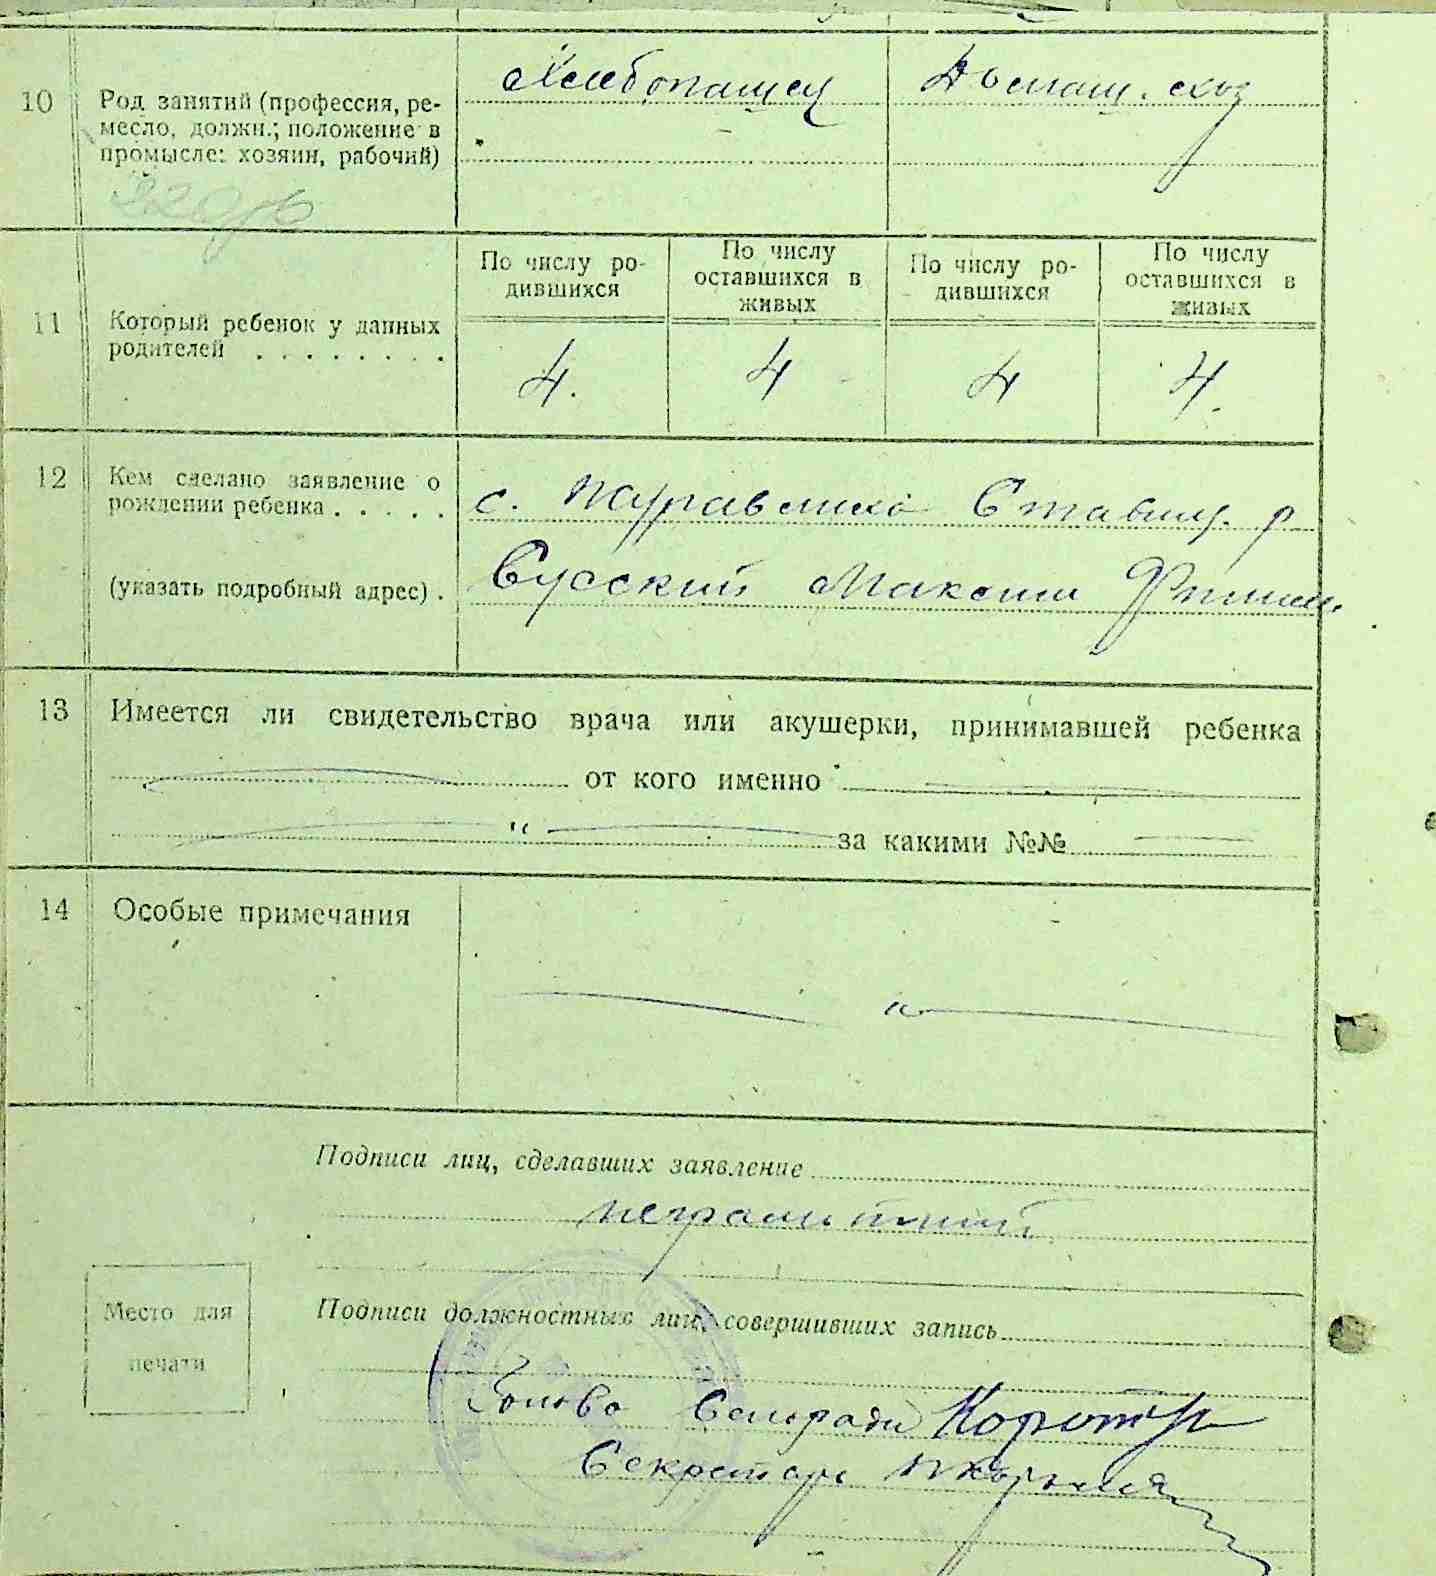 10
Род занятий (профессия, ре-
месло, должн.; положение в
промысле: хозяин, рабочий)
Хлебопашец
Домаш. хоз
11
Который ребенок у данных
родителей . . . . . . . .
По числу ро-
дившихся
По числу
оставшихся в
живых
По числу ро-
дившихся
По числу
оставшихся в
живых
4.
4
4
4.
12
Кем сделано заявление о
рождении ребенка . . . . .
(указать подробный адрес) .
с. Журавлиха Ставищ. р
Сусский Максим
13
Имеется ли свидетельство врача или акушерки, принимавшей ребенка
от кого именно
"
за какими №№
14
Особые примечания
"
Подписи лиц, сделавших заявление
неграмотний
Место для
печати
Подписи должностных лиц, совершивших запись
Голова Сельради
Секретарь